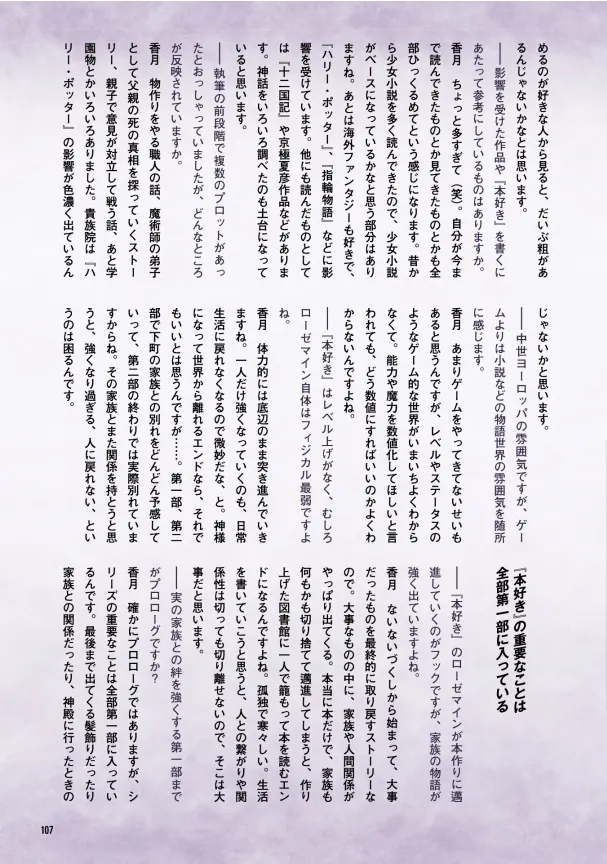 めるのが好きな人から見ると、だいぶ粗があ
るんじゃないかなとは思います。
――影響を受けた作品や『本好き』を書くに
あたって参考にしているものはありますか。
香月　ちょっと多すぎて（笑）。自分が今ま
で読んできたものとか見てきたものとかも全
部ひっくるめてという感じになります。昔か
ら少女小説を多く読んできたので、少女小説
がベースになっているかなと思う部分はあり
ますね。あとは海外ファンタジーも好きで、
『ハリー・ポッター』、『指輪物語』などに影
響を受けています。他にも読んだものとして
は『十二国記』や京極夏彦作品などがありま
す。神話をいろいろ調べたのも土台になって
いると思います。
――執筆の前段階で複数のプロットがあっ
たとおっしゃっていましたが、どんなところ
が反映されていますか。
香月　物作りをやる職人の話、魔術師の弟子
として父親の死の真相を探っていくストー
リー、親子で意見が対立して戦う話、あと学
園物とかいろいろありました。貴族院は『ハ
リー・ポッター』の影響が色濃く出ているん
じゃないかと思います。
――中世ヨーロッパの雰囲気ですが、ゲー
ムよりは小説などの物語世界の雰囲気を随所
に感じます。
香月　あまりゲームをやってきてないせいも
あると思うんですが、レベルやステータスの
ようなゲーム的な世界がいまいちよくわから
なくて。能力や魔力を数値化してほしいと言
われても、どう数値にすればいいのかよくわ
からないんですよね。
――『本好き』はレベル上げがなく、むしろ
ローゼマイン自体はフィジカル最弱ですよ
ね。
香月　体力的には底辺のまま突き進んでいき
ますね。一人だけ強くなっていくのも、日常
生活に戻れなくなるので微妙だな、と。神様
になって世界から離れるエンドなら、それで
もいいとは思うんですが……。第一部、第二
部で下町の家族との別れをどんどん予感して
いって、第二部の終わりでは実際別れていま
すからね。その家族とまた関係を持とうと思
うと、強くなり過ぎる、人に戻れない、とい
うのは困るんです。
『本好き』の重要なことは
全部第一部に入っている
――『本好き』のローゼマインが本作りに邁
進していくのがフックですが、家族の物語が
強く出ていますよね。
香月　ないないづくしから始まって、大事
だったものを最終的に取り戻すストーリーな
ので。大事なものの中に、家族や人間関係が
やっぱり出てくる。本当に本だけで、家族も
何もかも切り捨てて邁進してしまうと、作り
上げた図書館に一人で籠もって本を読むエン
ドになるんですよね。孤独で寒々しい。生活
を書いていこうと思うと、人との繋がりや関
係性は切っても切り離せないので、そこは大
事だと思います。
――実の家族との絆を強くする第一部まで
がプロローグですか？
香月　確かにプロローグではありますが、シ
リーズの重要なことは全部第一部に入ってい
るんです。最後まで出てくる髪飾りだったり
家族との関係だったり、神殿に行ったときの
107